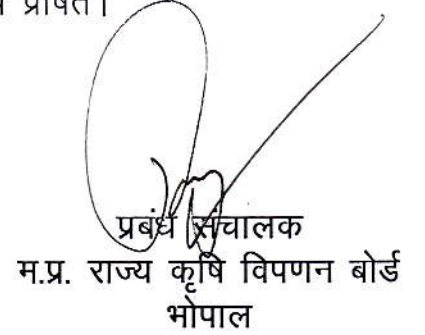 प्रेषित।
प्रबंध संचालक
म.प्र. राज्य कृषि विपणन बोर्ड
भोपाल